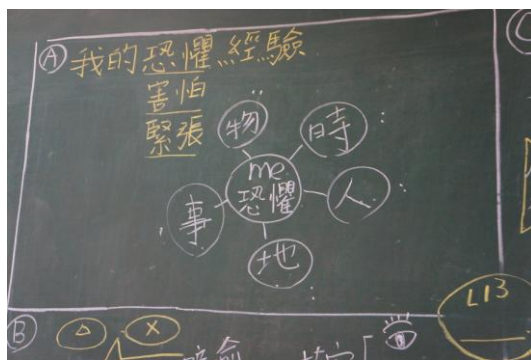 A 我的恐懼經驗
害怕
緊張
物
時
me
恐懼
人
事
地
L13
B